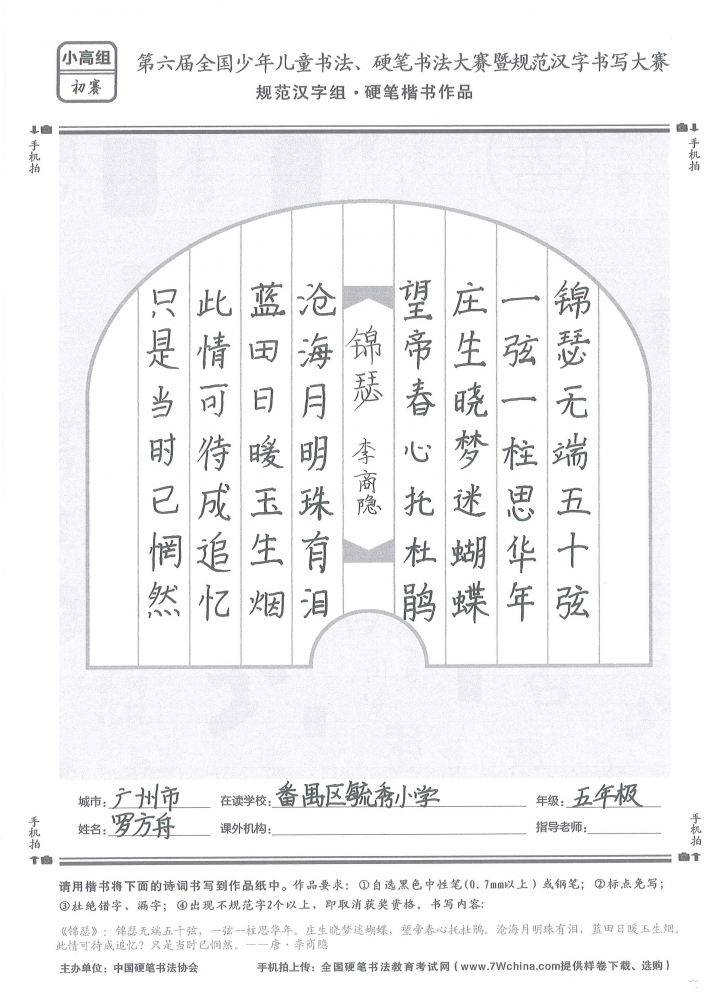 小高组
初赛
第六届全国少年儿童书法、硬笔书法大赛暨规范汉字书写大赛
规范汉字组·硬笔楷书作品
手机拍
手机拍
锦瑟无端五十弦
一弦一柱思华年
庄生晓梦迷蝴蝶
望帝春心托杜鹃
锦瑟 李商隐
沧海月明珠有泪
蓝田日暖玉生烟
此情可待成追忆
只是当时已惘然
城市：广州市 在读学校：番禺区毓秀小学 年级：五年级
姓名：罗方舟 课外机构： 指导老师：
手机拍
手机拍
请用楷书将下面的诗词书写到作品纸中。作品要求：①自选黑色中性笔(0.7mm以上）或钢笔；②标点免写；
③杜绝错字、漏字；④出现不规范字2个以上，即取消获奖资格。书写内容：
《锦瑟》：锦瑟无端五十弦，一弦一柱思华年。庄生晓梦迷蝴蝶，望帝春心托杜鹃。沧海月明珠有泪，蓝田日暖玉生烟。
此情可待成追忆？只是当时已惘然。——唐·李商隐
主办单位：中国硬笔书法协会 手机拍上传：全国硬笔书法教育考试网（www.7Wchina.com提供样卷下载、选购）